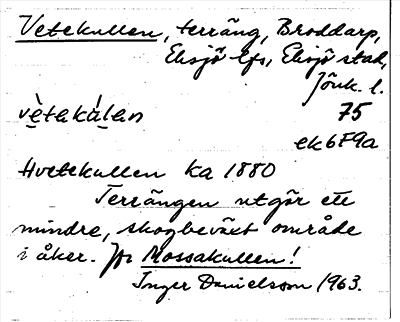 Vetekullen, terräng, Broddarp,
Eksjö lfs, Eksjö stad,
Jönk. l.
vètekálen 75
ek 6F9a
Hvetekullen ka 1880
Terrängen utgör ett
mindre, skogbeväxt område
i åker. Jfr Mossakullen!
Inger Danielsson 1963.